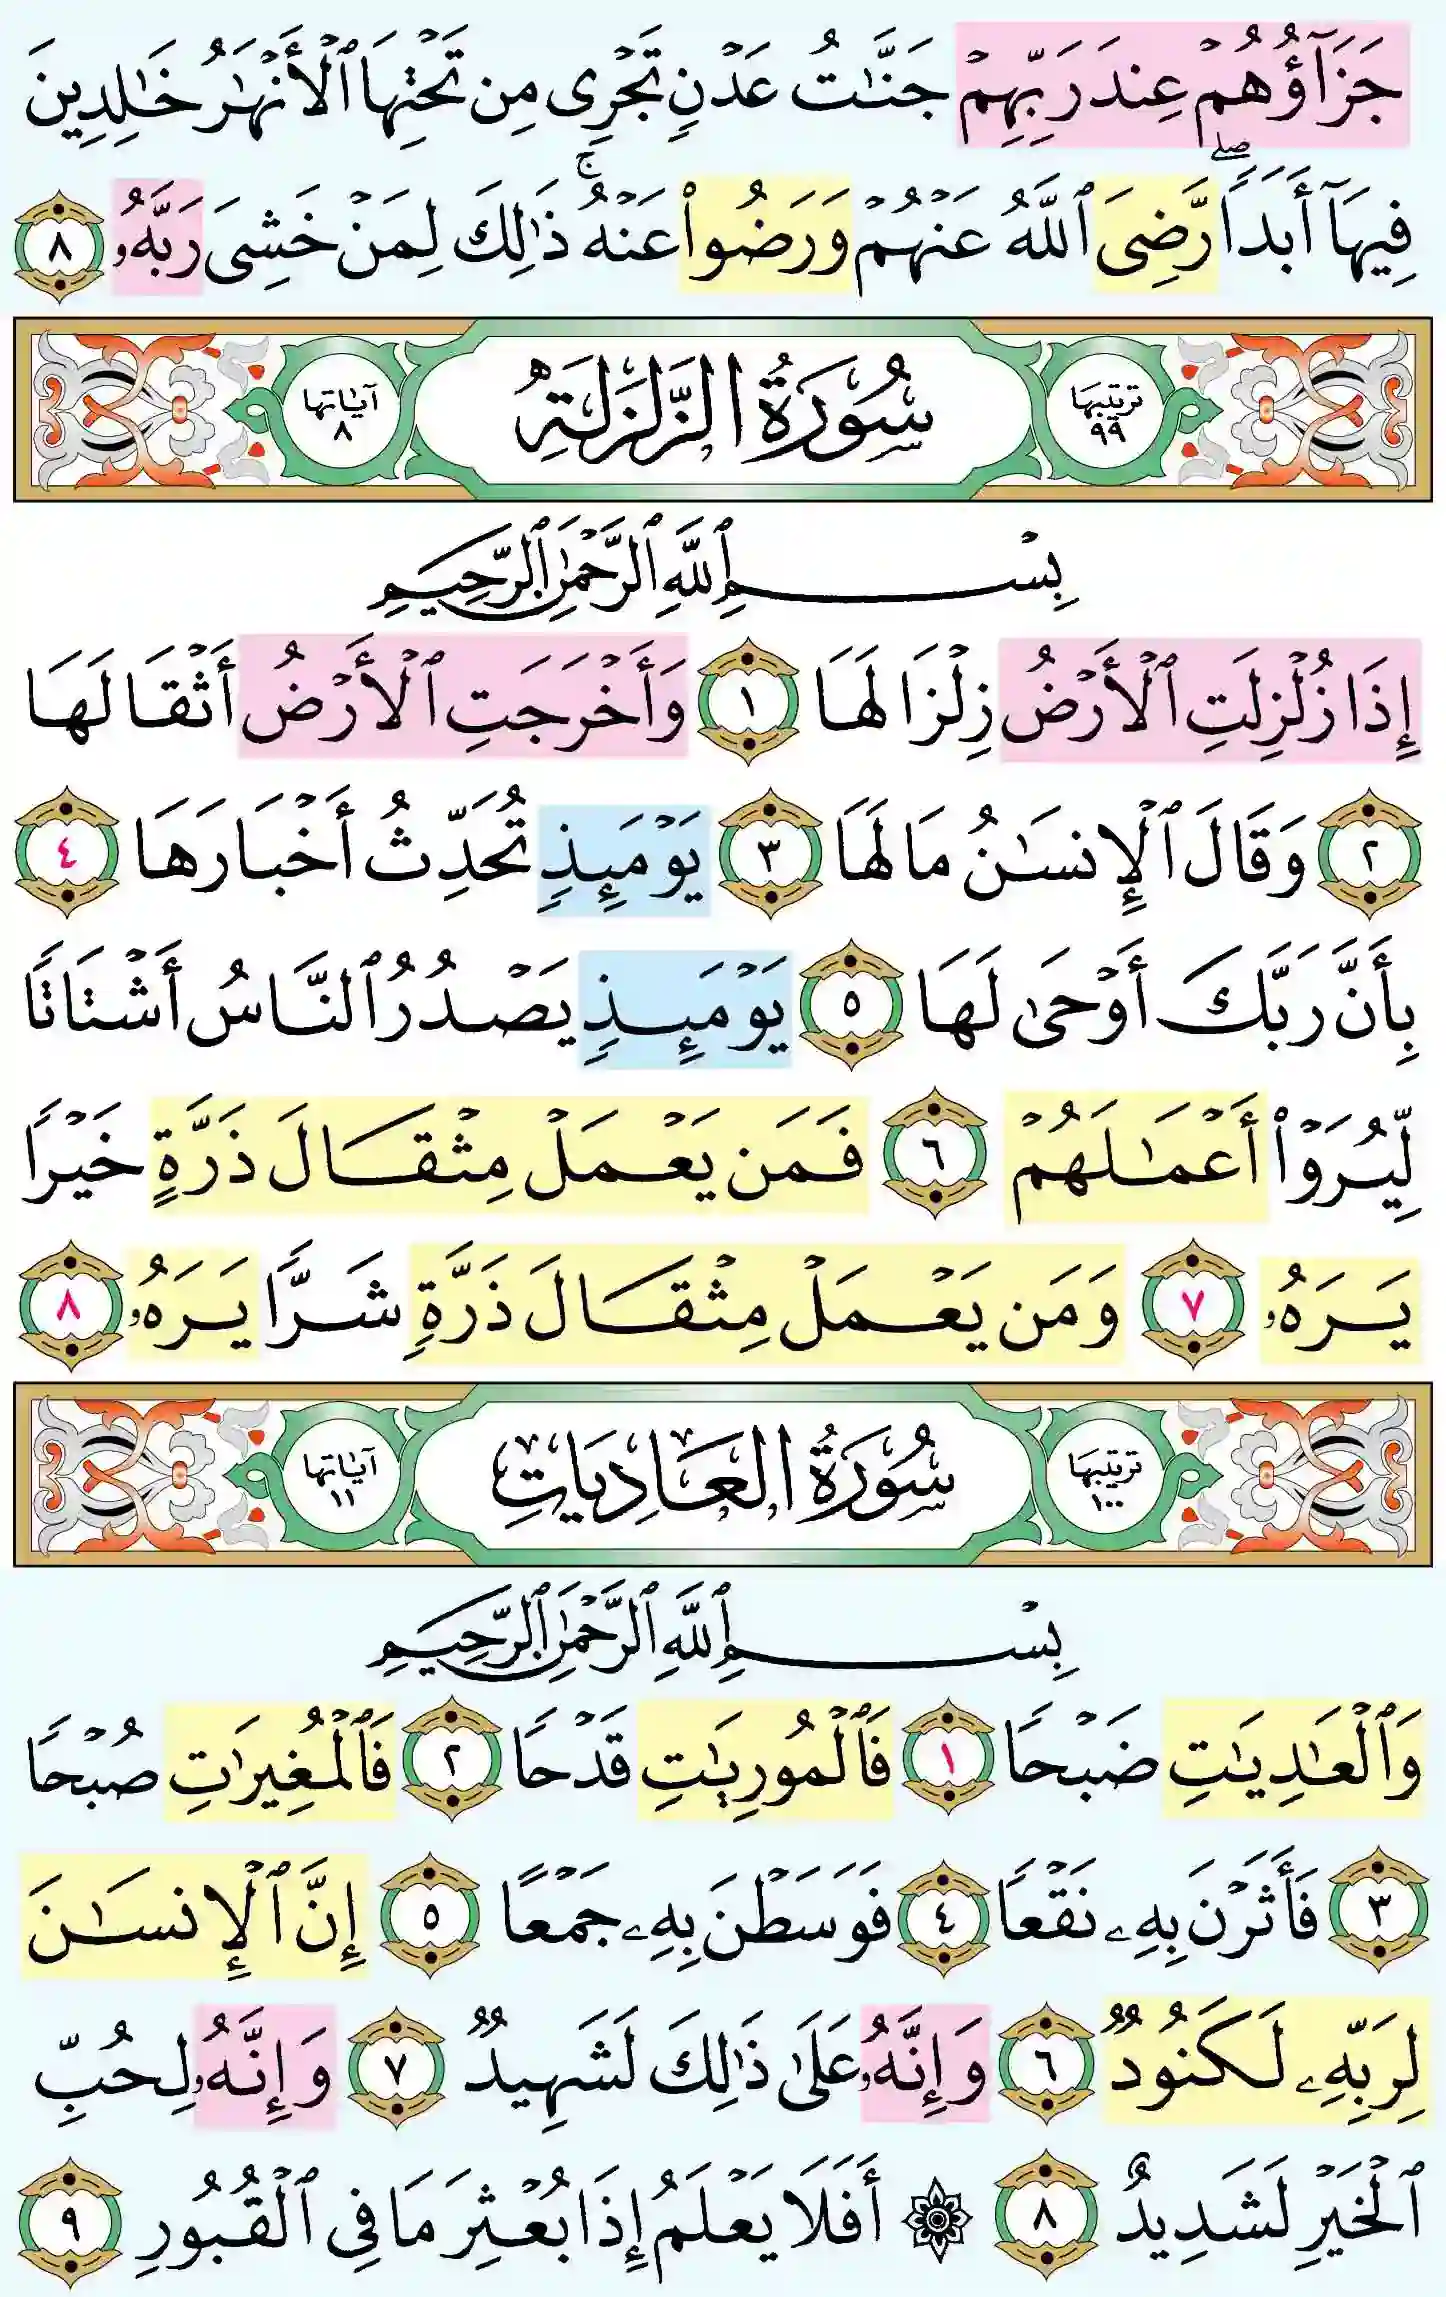 جَزَآؤُهُمْ عِندَ رَبِّهِمْ جَنَّـٰتُ عَدْنٍ تَجْرِى مِن تَحْتِهَا ٱلْأَنْهَـٰرُ خَـٰلِدِينَ
فِيهَآ أَبَدًا ۖ رَّضِىَ ٱللَّهُ عَنْهُمْ وَرَضُوا۟ عَنْهُ ۚ ذَٰلِكَ لِمَنْ خَشِىَ رَبَّهُۥ ٨
ترتيبها ٩٩ سُورَةُ الزَّلْزَلَةِ آياتها ٨
بِسْمِ ٱللَّهِ ٱلرَّحْمَـٰنِ ٱلرَّحِيمِ
إِذَا زُلْزِلَتِ ٱلْأَرْضُ زِلْزَالَهَا ١ وَأَخْرَجَتِ ٱلْأَرْضُ أَثْقَالَهَا
٢ وَقَالَ ٱلْإِنسَـٰنُ مَا لَهَا ٣ يَوْمَئِذٍ تُحَدِّثُ أَخْبَارَهَا ٤
بِأَنَّ رَبَّكَ أَوْحَىٰ لَهَا ٥ يَوْمَئِذٍ يَصْدُرُ ٱلنَّاسُ أَشْتَاتًا
لِّيُرَوْا۟ أَعْمَـٰلَهُمْ ٦ فَمَن يَعْمَلْ مِثْقَالَ ذَرَّةٍ خَيْرًا
يَرَهُۥ ٧ وَمَن يَعْمَلْ مِثْقَالَ ذَرَّةٍ شَرًّا يَرَهُۥ ٨
ترتيبها ١٠٠ سُورَةُ العَادِيَاتِ آياتها ١١
بِسْمِ ٱللَّهِ ٱلرَّحْمَـٰنِ ٱلرَّحِيمِ
وَٱلْعَـٰدِيَـٰتِ ضَبْحًا ١ فَٱلْمُورِيَـٰتِ قَدْحًا ٢ فَٱلْمُغِيرَٰتِ صُبْحًا
٣ فَأَثَرْنَ بِهِۦ نَقْعًا ٤ فَوَسَطْنَ بِهِۦ جَمْعًا ٥ إِنَّ ٱلْإِنسَـٰنَ
لِرَبِّهِۦ لَكَنُودٌ ٦ وَإِنَّهُۥ عَلَىٰ ذَٰلِكَ لَشَهِيدٌ ٧ وَإِنَّهُۥ لِحُبِّ
ٱلْخَيْرِ لَشَدِيدٌ ٨ ۞ أَفَلَا يَعْلَمُ إِذَا بُعْثِرَ مَا فِى ٱلْقُبُورِ ٩